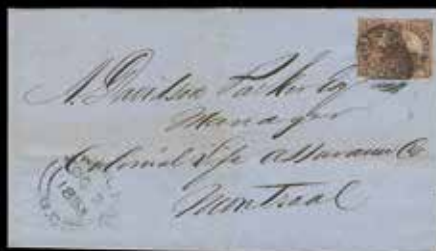 A. Davidson Parker Esq
Manager
Colonial Life Assurance Co
Montreal